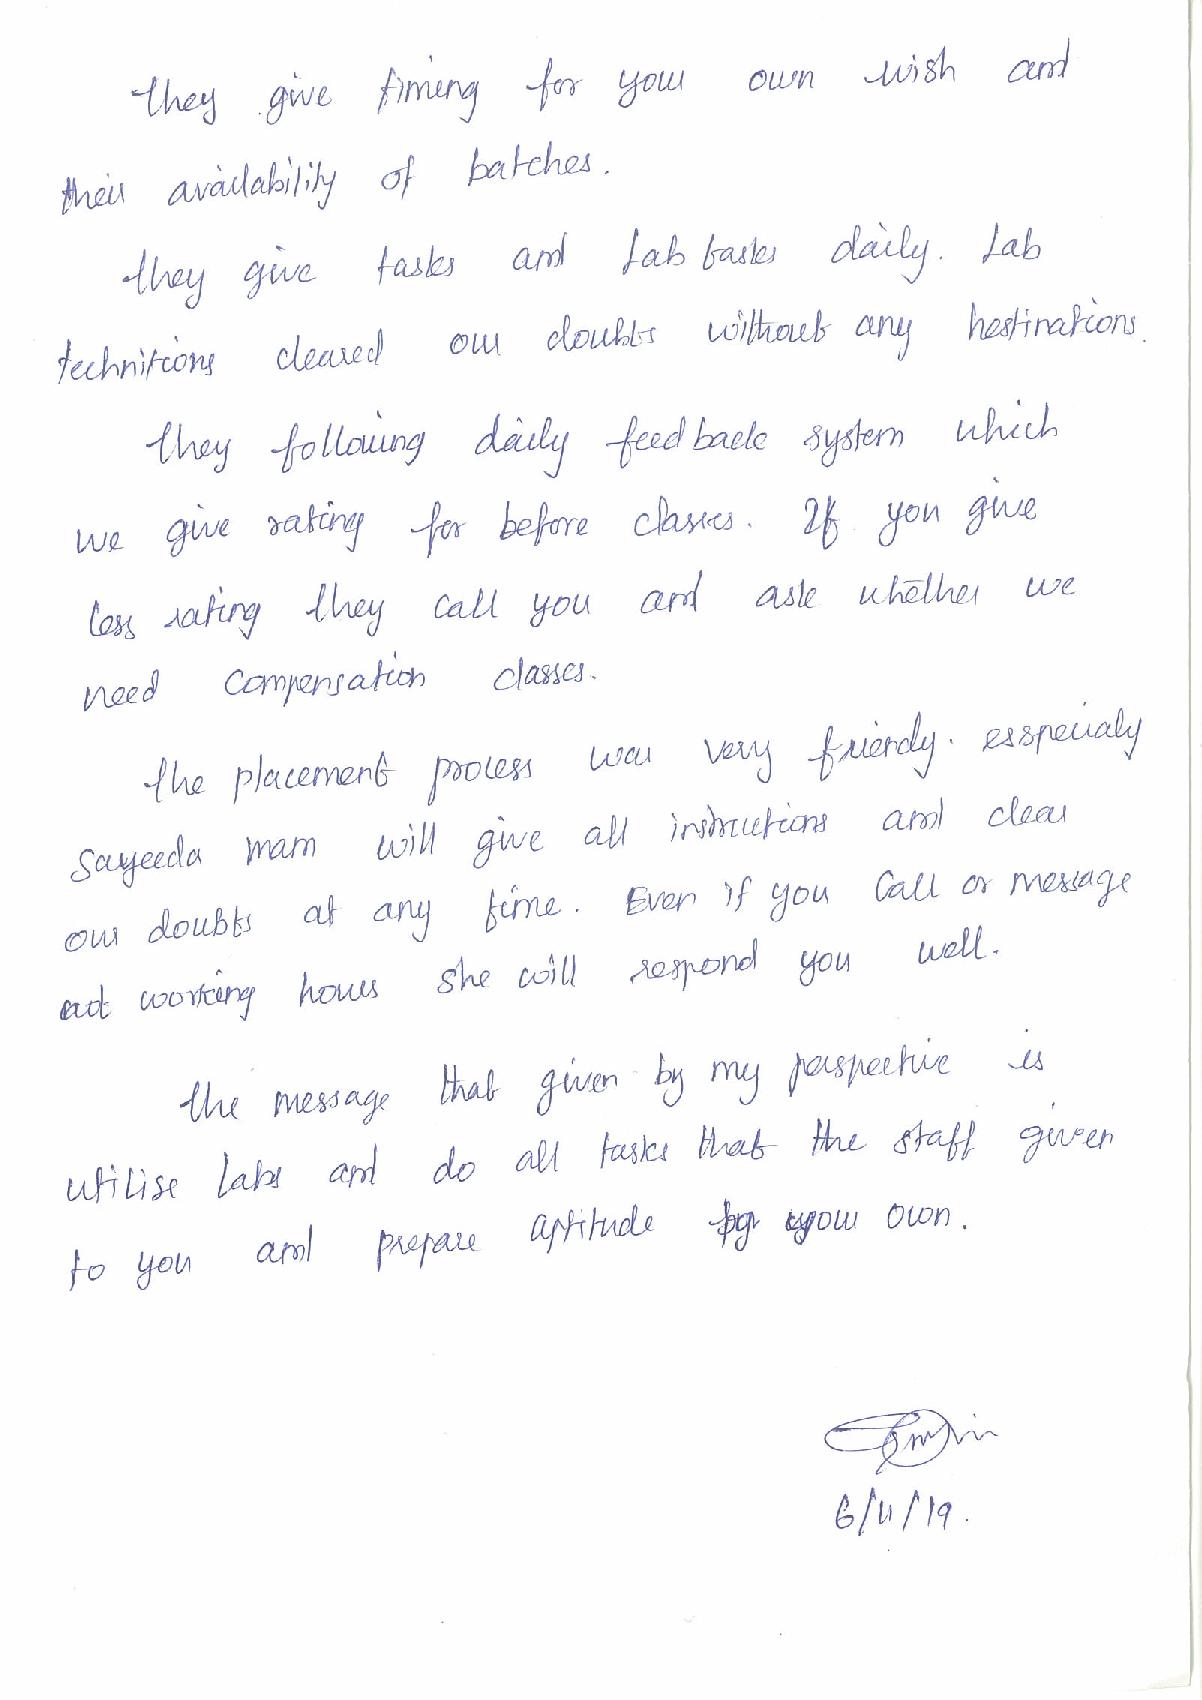 they give timing for your own wish and
their availability of batches.
they give tasks and Lab tasks daily. Lab
technitions cleared our doubts without any hestinations.
they following daily feedback system which
we give rating for before classes. If you give
less rating they call you and ask whether we
need compensation classes.
the placement process was very friendy. esspecialy
Sayeeda mam will give all instructions and clear
our doubts at any time. Even if you call or message
at working hours she will respond you well.
the message that given by my perspective is
utilise labs and do all tasks that the staff given
to you and prepare aptitude your own.
6/11/19.